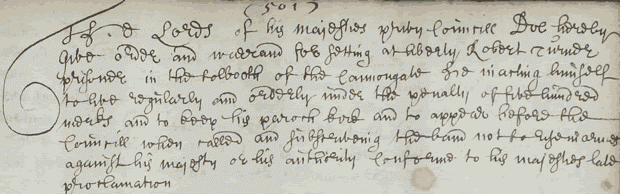 (501)
The Lords of his majesties privy Councill Doe hereby
Give order and warrand for setting at liberty Robert Turner
prisoner in the tolbooth of the Cannongate he inacting himself
to live regularly and orderly under the penalty of five hundred
merks and to keep his paroch kirk and to appear before the
Councill when called and subscryveing the band not to ryse in armes
against his majesty or his authority Conforme to his majesties late
proclamation